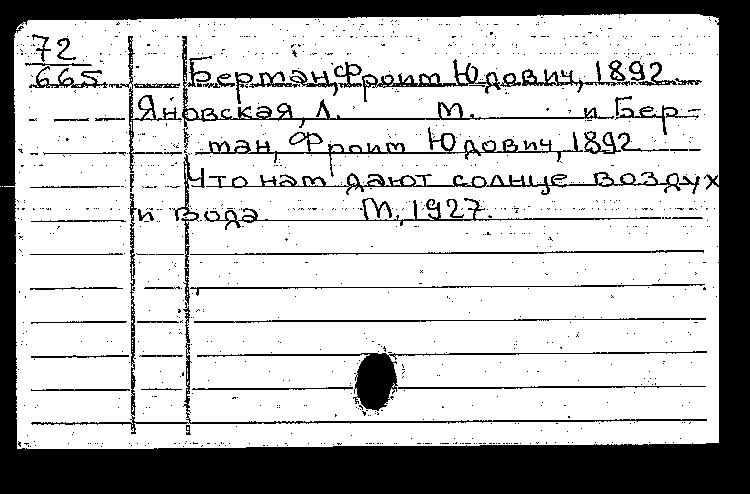 72
665
Берман, Фроим Юдович, 1892
Яновская, Л. М. и Бер-
ман, Фроим Юдович, 1892
Что нам дают солнце воздух
и вода М., 1927.